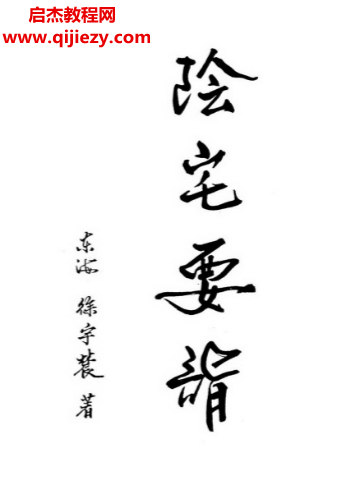 启杰教程网
www.qijiezy.com
陰宅要詣
东海 徐宇辳 著